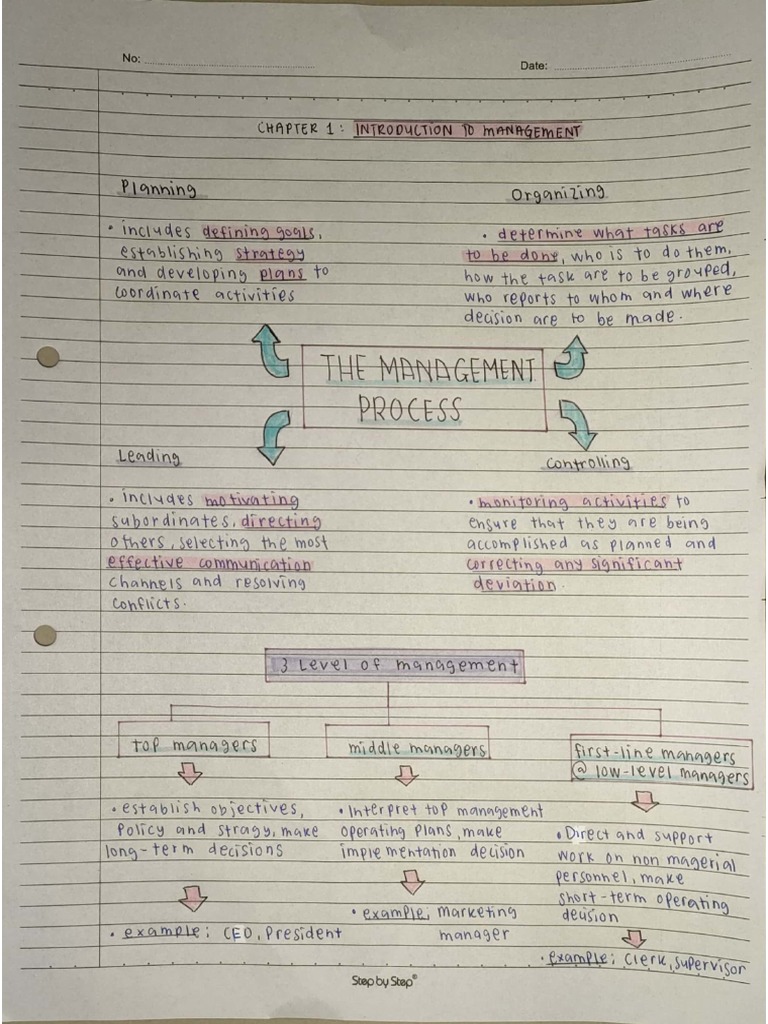 No:
Date:
CHAPTER 1: INTRODUCTION TO MANAGEMENT
Planning
• includes defining goals,
establishing strategy
and developing plans to
coordinate activities
Organizing
• determine what tasks are
to be done, who is to do them,
how the task are to be grouped,
who reports to whom and where
decision are to be made.
THE MANAGEMENT
PROCESS
Leading
• includes motivating
subordinates, directing
others, selecting the most
effective communication
channels and resolving
conflicts.
Controlling
• monitoring activities to
ensure that they are being
accomplished as planned and
correcting any significant
deviation.
3 Level of management
top managers
• establish objectives,
policy and stragy, make
long-term decisions
• example: CEO, President
middle managers
• Interpret top management
operating plans, make
implementation decision
• example: Marketing
manager
first-line managers
@ low-level managers
• Direct and support
work on non magerial
personnel, make
short-term operating
decision
• example: Clerk, supervisor
Step by Step®